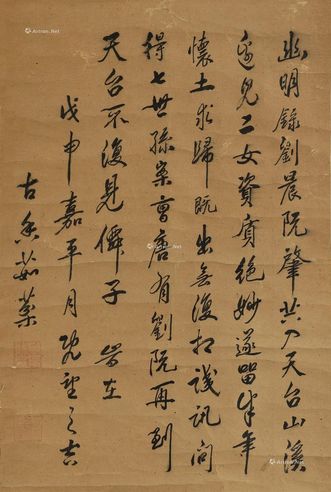 幽明錄劉晨阮肇共入天台山溪
邊見二女資質絕妙遂留半年
懷土求歸既出無復相識訊問
得七世孫案曹唐有劉阮再到
天台不復見僊子
戊申嘉平月既望之吉